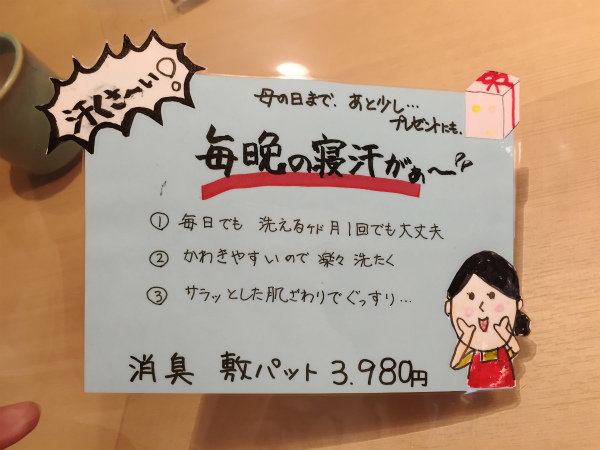 汗くさーい
母の日まで、あと少し…
プレゼントにも、
毎晩の寝汗がぁ〜
① 毎日でも 洗えるケド 月1回でも大丈夫
② かわきやすいので 楽々 洗たく
③ サラッとした肌ざわりでぐっすり…
消臭 敷パット 3.980円